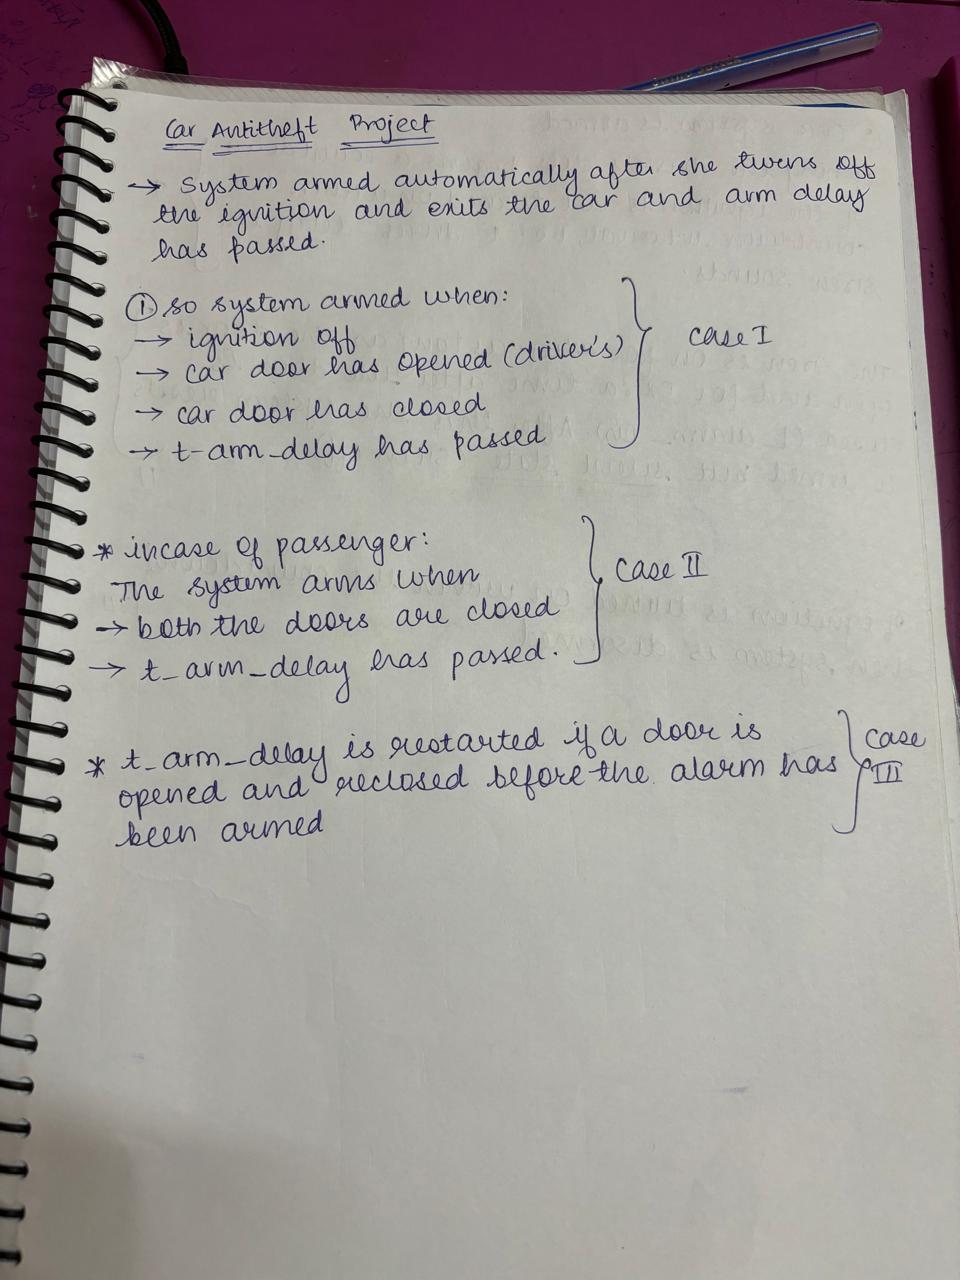 Car Antitheft Project
→ system armed automatically after she turns off
the ignition and exits the car and arm delay
has passed.
① so system armed when:
→ ignition off
→ car door has opened (driver's)
→ car door has closed
→ t-arm_delay has passed
case I
* incase of passenger:
The system arms when
→ both the doors are closed
→ t_arm_delay has passed.
case II
* t_arm_delay is restarted if a door is
opened and reclosed before the alarm has
been armed
case
III